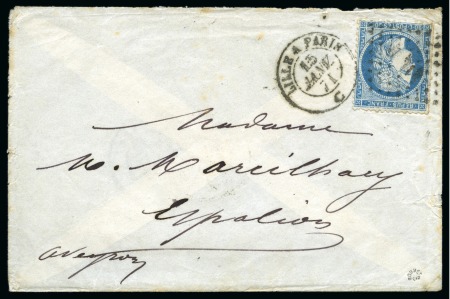 LILLE A PARIS
15
JANV.
71
C
REPUB. FRANC.
Madame
M. Marcilhacy
Espalion
Aveyron